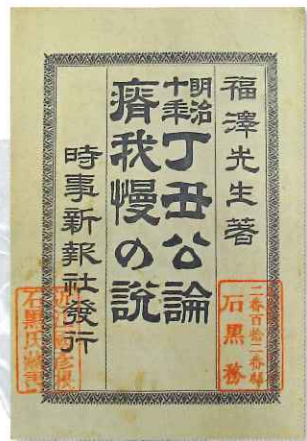 福澤先生著
明治十年
丁丑公論
瘠我慢の說
時事新報社發行
石黒務